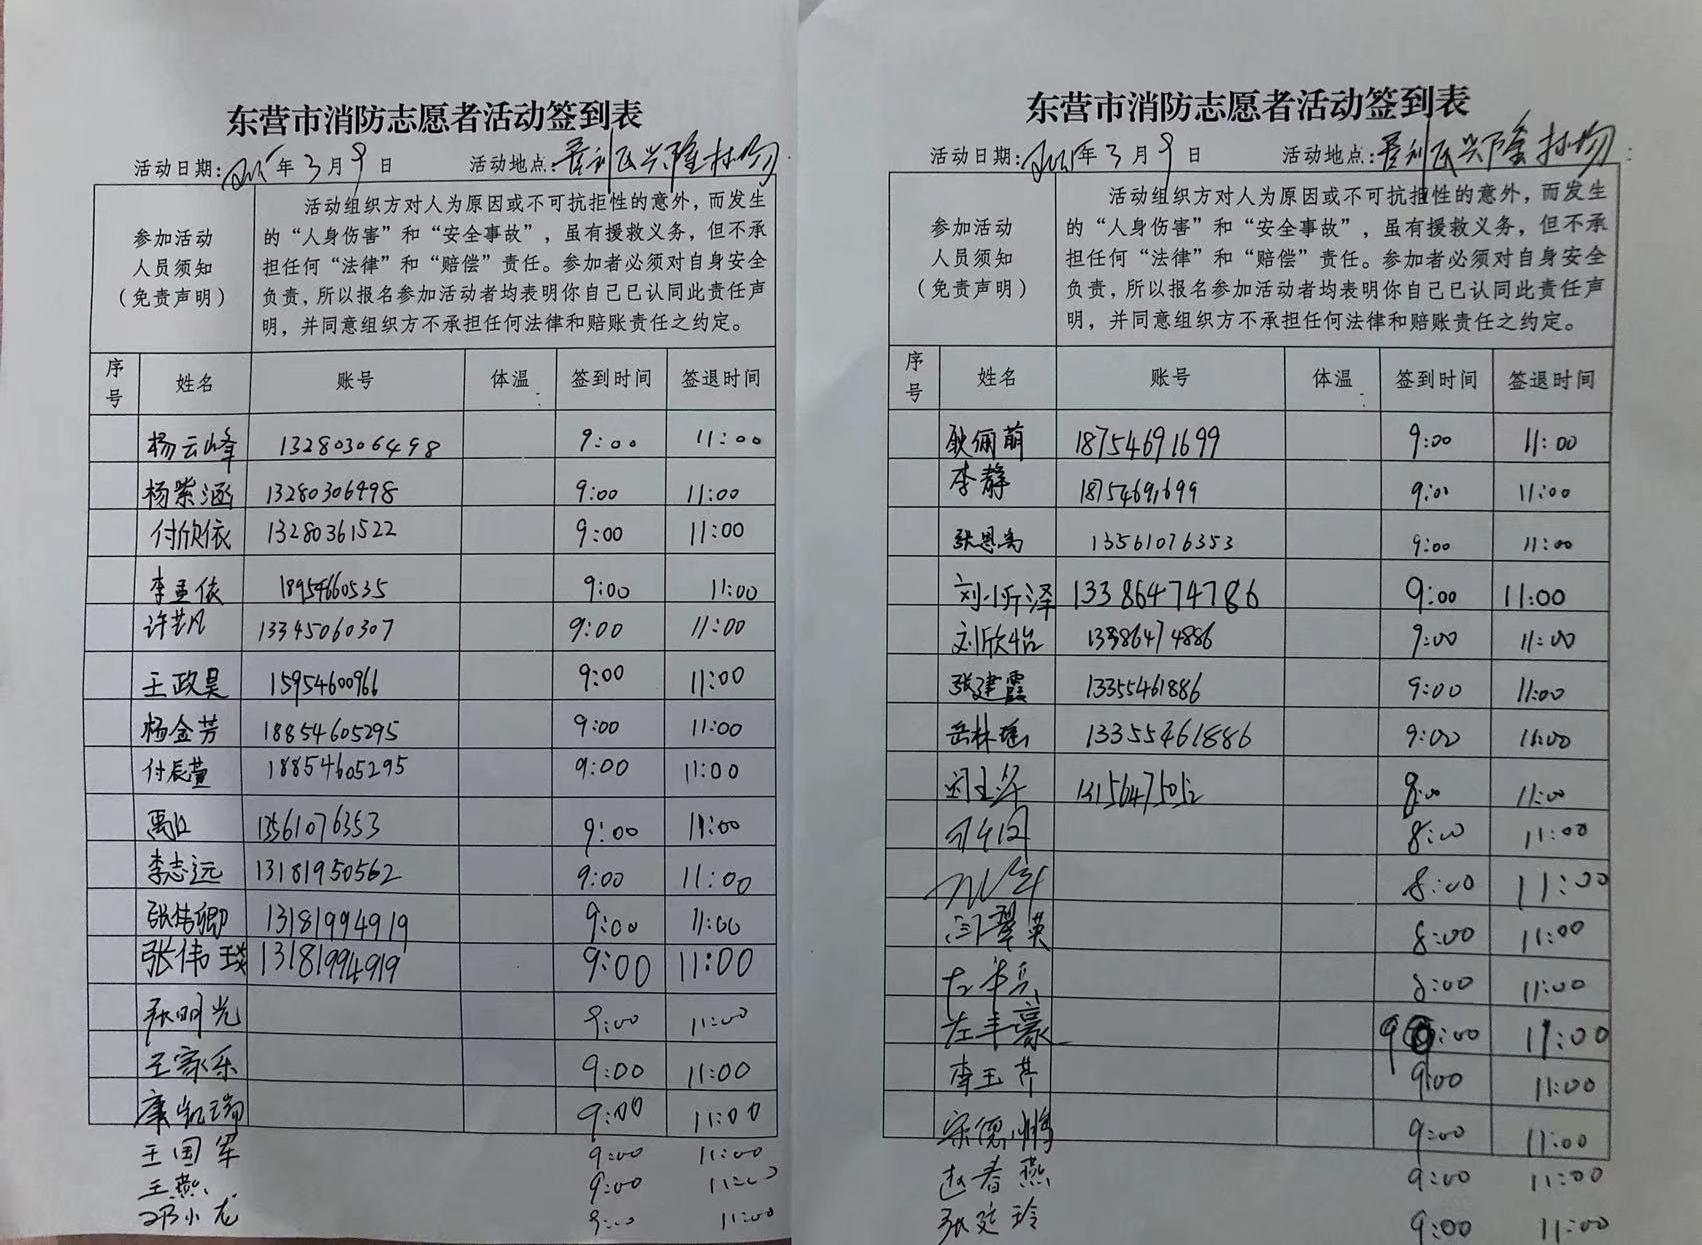 东营市消防志愿者活动签到表
活动日期：2025年3月9日 活动地点：垦利区兴隆林场
参加活动人员须知（免责声明）
活动组织方对人为原因或不可抗拒性的意外，而发生
的“人身伤害”和“安全事故”，虽有援救义务，但不承
担任何“法律”和“赔偿”责任。参加者必须对自身安全
负责，所以报名参加活动者均表明你自己已认同此责任声
明，并同意组织方不承担任何法律和赔账责任之约定。
序号 姓名 账号 体温 签到时间 签退时间
杨云峰 13280306498 9:00 11:00
杨紫涵 13280306498 9:00 11:00
付欣依 13280361522 9:00 11:00
李孟依 18954660535 9:00 11:00
许艺凡 13345060307 9:00 11:00
王政昊 15954600966 9:00 11:00
杨金芳 18854605295 9:00 11:00
付辰萱 18854605295 9:00 11:00
13561076353 9:00 11:00
李志远 13181950562 9:00 11:00
张倩卿 13181994919 9:00 11:00
张伟琰 13181994919 9:00 11:00
张明光 9:00 11:00
王家乐 9:00 11:00
康凯瑞 9:00 11:00
王国军 9:00 11:00
王燕 9:00 11:00
邓小龙 9:00 11:00
东营市消防志愿者活动签到表
活动日期：2025年3月9日 活动地点：垦利区兴隆林场
参加活动人员须知（免责声明）
活动组织方对人为原因或不可抗拒性的意外，而发生
的“人身伤害”和“安全事故”，虽有援救义务，但不承
担任何“法律”和“赔偿”责任。参加者必须对自身安全
负责，所以报名参加活动者均表明你自己已认同此责任声
明，并同意组织方不承担任何法律和赔账责任之约定。
序号 姓名 账号 体温 签到时间 签退时间
耿俪萌 18754691699 9:00 11:00
李静 18754691699 9:00 11:00
张恩禹 13561076353 9:00 11:00
刘小沂泽 13386474786 9:00 11:00
刘欣怡 13386474886 9:00 11:00
张建霞 13355461886 9:00 11:00
岳林瑶 13355461886 9:00 11:00
13156475052 8:00 11:00
8:00 11:00
8:00 11:00
闫翠英 8:00 11:00
左华兵 8:00 11:00
左丰豪 9:00 11:00
李玉芹 9:00 11:00
宋德鹏 9:00 11:00
赵春燕 9:00 11:00
张延玲 9:00 11:00